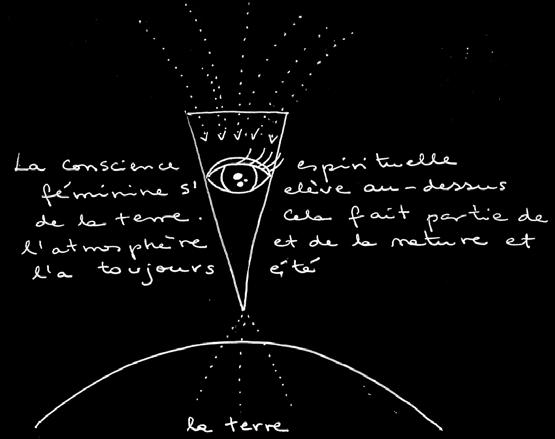 La conscience espirituelle
féminine s'elève au-dessus
de la terre. Cela fait partie de
l'atmosphère et de la nature et
l'a toujours été
la terre